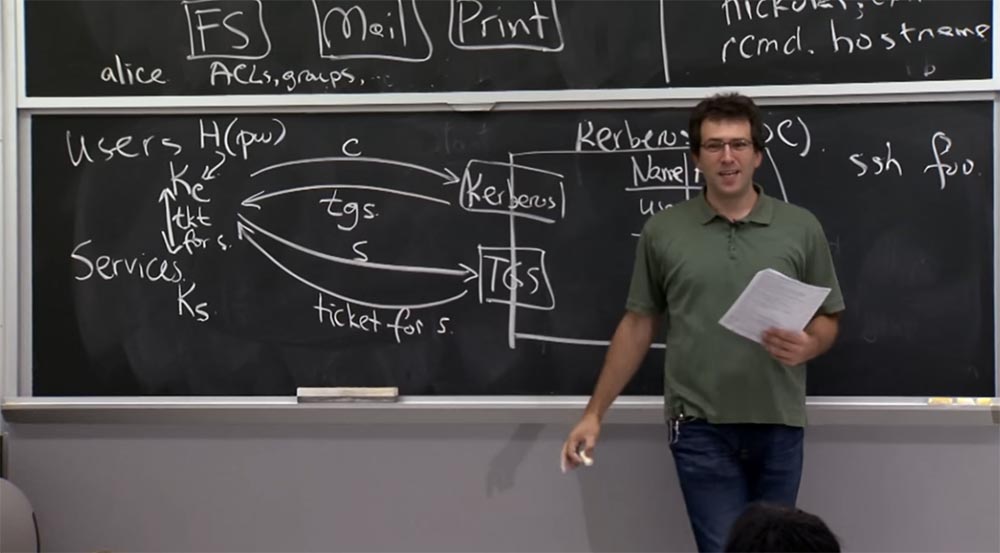 FS Mail Print
alice ACLs, groups, ...
rcmd. hostname
Users H(pw)
Kc
tkt
for s.
Services
Ks
c
tgs.
s
ticket for s.
Kerberos
TGS
Kerberos
Name
ssh foo.